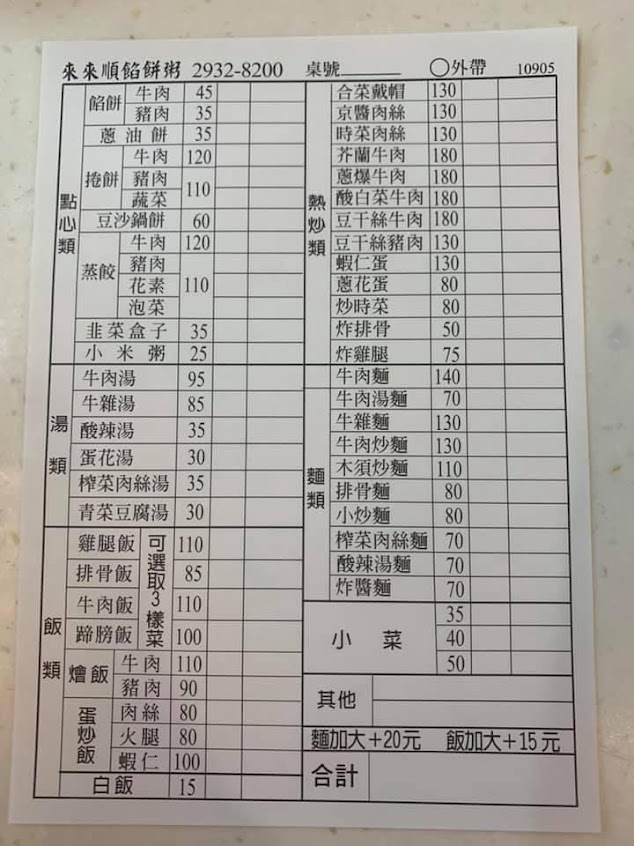 來來順餡餅粥 2932-8200 桌號 ○外帶 10905
點心類
餡餅 牛肉 45
豬肉 35
蔥油餅 35
捲餅 牛肉 120
豬肉 110
蔬菜
豆沙鍋餅 60
蒸餃 牛肉 120
豬肉
花素 110
泡菜
韭菜盒子 35
小米粥 25
湯類
牛肉湯 95
牛雜湯 85
酸辣湯 35
蛋花湯 30
榨菜肉絲湯 35
青菜豆腐湯 30
飯類
雞腿飯 110
排骨飯 85
牛肉飯 110
蹄膀飯 100
可選取3樣菜
燴飯 牛肉 110
豬肉 90
蛋炒飯 肉絲 80
火腿 80
蝦仁 100
白飯 15
熱炒類
合菜戴帽 130
京醬肉絲 130
時菜肉絲 130
芥蘭牛肉 180
蔥爆牛肉 180
酸白菜牛肉 180
豆干絲牛肉 180
豆干絲豬肉 130
蝦仁蛋 130
蔥花蛋 80
炒時菜 80
炸排骨 50
炸雞腿 75
麵類
牛肉麵 140
牛肉湯麵 70
牛雜麵 130
牛肉炒麵 130
木須炒麵 110
排骨麵 80
小炒麵 80
榨菜肉絲麵 70
酸辣湯麵 70
炸醬麵 70
小菜 35
40
50
其他
麵加大+20元 飯加大+15元
合計